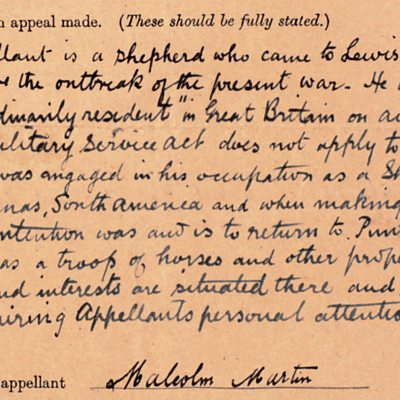 n appeal made. (These should be fully stated.)
llant is a shepherd who came to Lewis
the outbreak of the present war. He
dinarily resident" in Great Britain on a
ilitary Service Act does not apply to
was engaged in his occupation as a S
nas, South America and when making
ntention was and is to return to Pun
as a troop of horses and other prope
nd interests are situated there and
uiring Appellants personal attentio
appellant Malcolm Martin